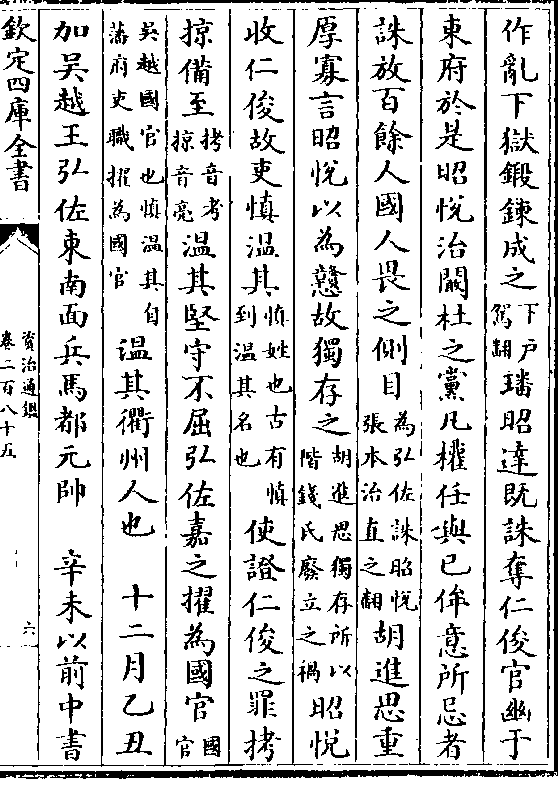 作亂下獄鍛鍊成之下戶駕翻璠昭達既誅奪仁俊官幽于
東府於是昭悅治闞杜之黨凡權任與已侔意所忌者
誅放百餘人國人畏之側目為弘佐誅昭悅張本治直之翻胡進思重
厚寡言昭悅以為戇故獨存之胡進思獨存所以階錢氏廢立之禍昭悅
收仁俊故吏慎溫其慎姓也古有慎到溫其名也使證仁俊之罪拷
掠備至拷音考掠音亮溫其堅守不屈弘佐嘉之擢為國官國官
吳越國官也慎溫其自藩府吏職擢為國官溫其衢州人也 十二月乙丑
加吳越王弘佐東南面兵馬都元帥 辛未以前中書
欽定四庫全書
資治通鑑
卷二百八十五
六